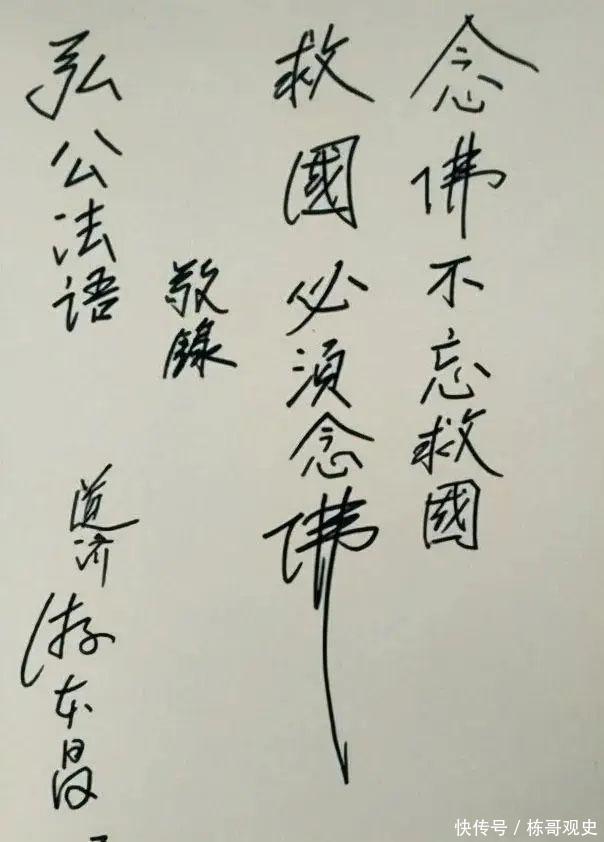 念佛不忘救國
救國必須念佛
敬錄
弘公法语
道济
游本昌
快传号／栋哥观史